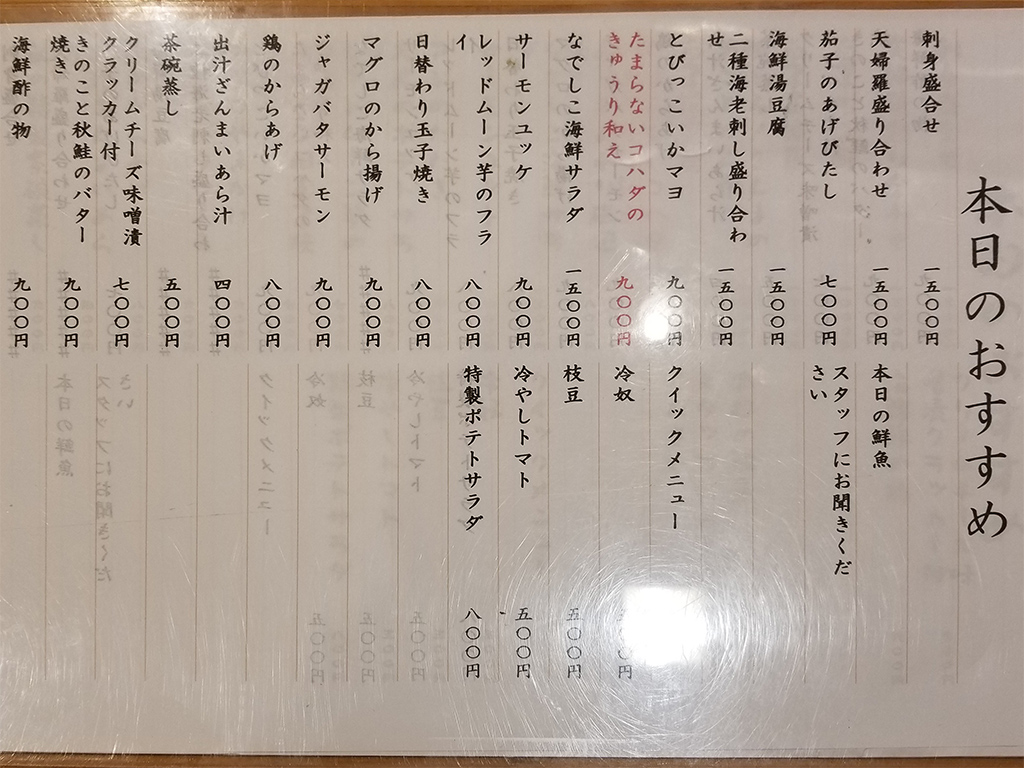 本日のおすすめ
刺身盛合せ 一五〇〇円
天婦羅盛り合わせ 一五〇〇円
茄子のあげびたし 七〇〇円
海鮮湯豆腐 一五〇〇円
二種海老刺し盛り合わ
せ 一五〇〇円
とびっこいかマヨ 九〇〇円
たまらないコハダの
きゅうり和え 九〇〇円
なでしこ海鮮サラダ 一五〇〇円
サーモンユッケ 九〇〇円
レッドムーン芋のフラ
イ 八〇〇円
日替わり玉子焼き 八〇〇円
マグロのから揚げ 九〇〇円
ジャガバタサーモン 九〇〇円
鶏のからあげ 八〇〇円
出汁ざんまいあら汁 四〇〇円
茶碗蒸し 五〇〇円
クリームチーズ味噌漬
クラッカー付 七〇〇円
きのこと秋鮭のバター
焼き 九〇〇円
海鮮酢の物 九〇〇円
本日の鮮魚
スタッフにお聞きくだ
さい
クイックメニュー
冷奴 五〇〇円
枝豆 五〇〇円
冷やしトマト 五〇〇円
特製ポテトサラダ 八〇〇円